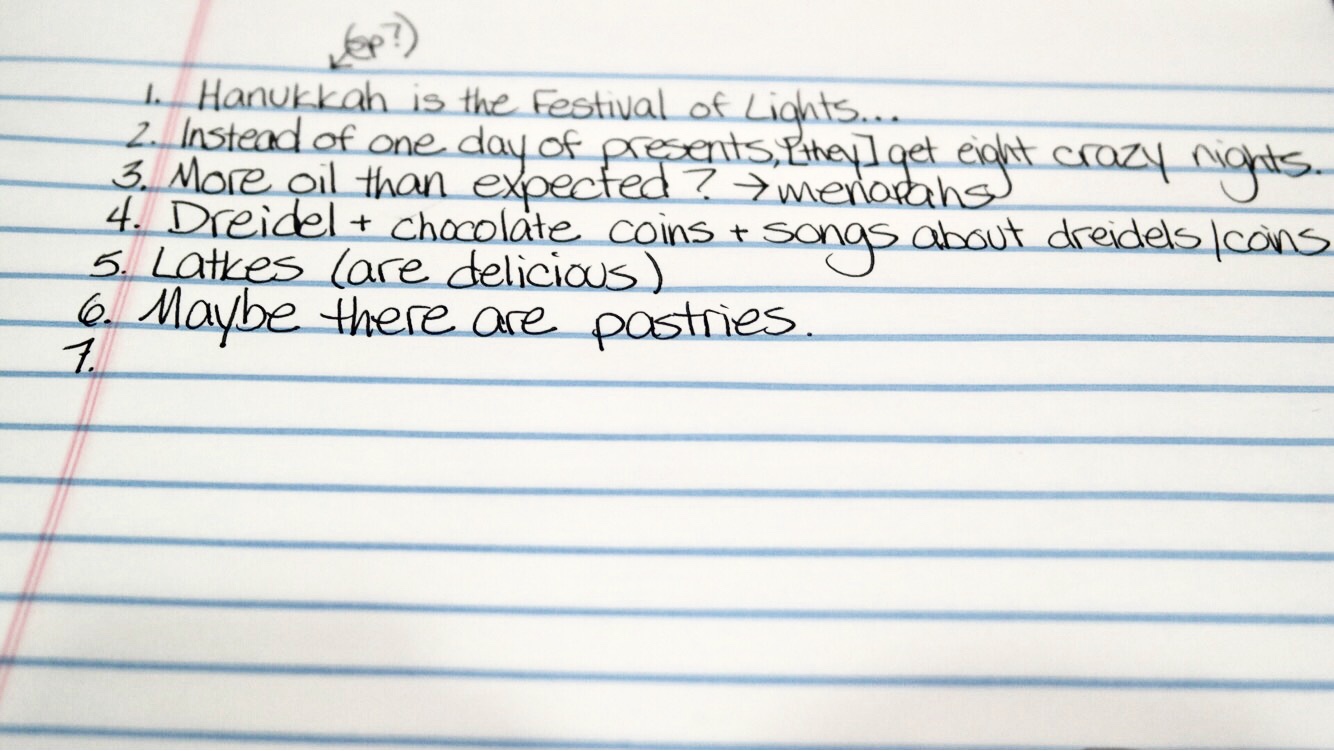 (sp?)
1. Hanukkah is the Festival of Lights...
2. Instead of one day of presents, [they] get eight crazy nights.
3. More oil than expected? → menorahs
4. Dreidel + chocolate coins + songs about dreidels/coins
5. Latkes (are delicious)
6. Maybe there are pastries.
7.